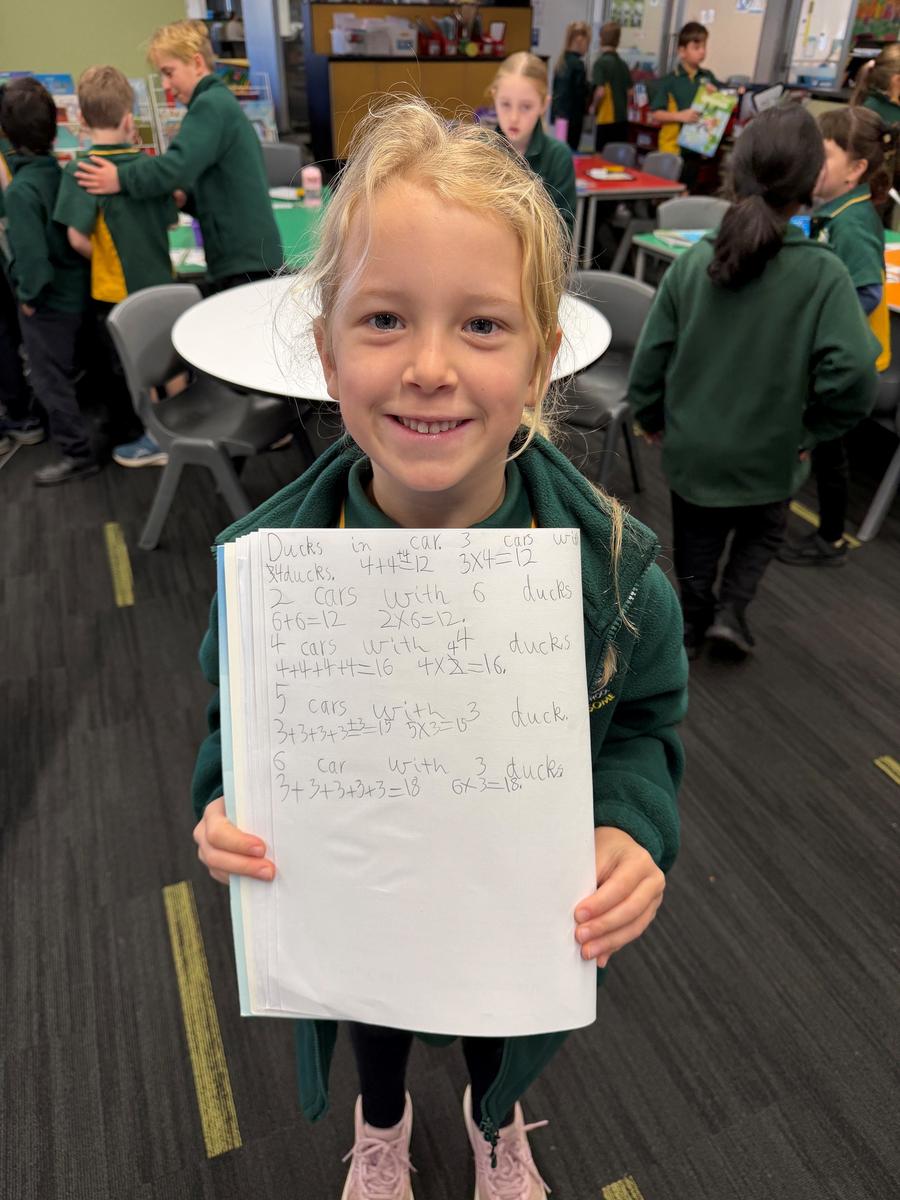 Ducks in car. 3 cars wit
4ducks. 4+4+4=12 3X4=12
2 cars with 6 ducks
6+6=12 2X6=12.
4 cars with 4 ducks
4+4+4+4=16 4X=16.
5
cars with 3 duck.
3+3+3+3+3=15 5X3=15
6 car with 3 ducks
3+3+3+3+3=18 6X3=18.
OME